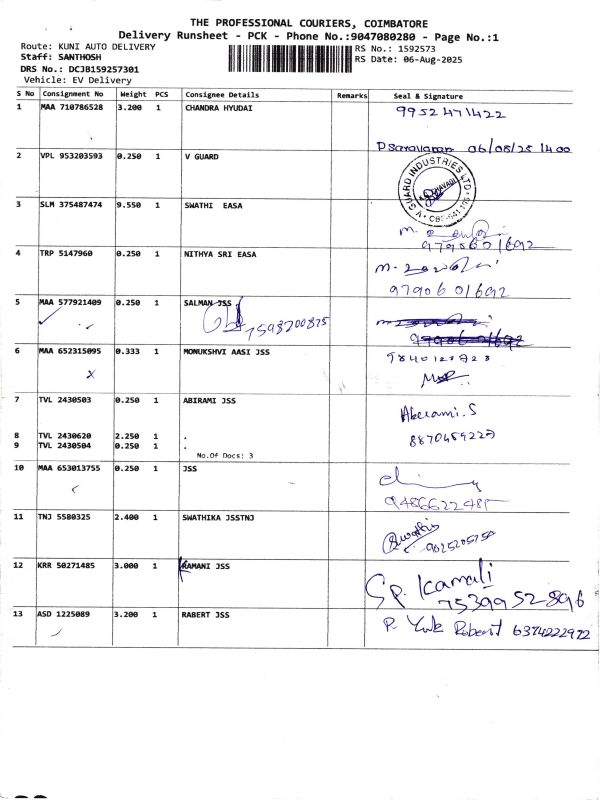 THE PROFESSIONAL COURIERS, COIMBATORE
Delivery Runsheet - PCK - Phone No.:9047080280 - Page No.:1
Route: KUNI AUTO DELIVERY RS No.: 1592573
Staff: SANTHOSH RS Date: 06-Aug-2025
DRS No.: DCJB159257301
Vehicle: EV Delivery
S No Consignment No Weight PCS Consignee Details Remarks Seal & Signature
1 MAA 710786528 3.200 1 CHANDRA HYUDAI 9952471422
P Saravanan 06/08/25 1400
2 VPL 953203593 0.250 1 V GUARD
V GUARD INDUSTRIES LTD
3 SLM 375487474 9.550 1 SWATHI EASA
9790601692
4 TRP 5147960 0.250 1 NITHYA SRI EASA
9790601692
5 MAA 577921409 0.250 1 SALMAN JSS
7598700875
6 MAA 652315095 0.333 1 MONUKSHVI AASI JSS
7 TVL 2430503 0.250 1 ABIRAMI JSS
Aberami.S
8 TVL 2430620 2.250 1 .
9 TVL 2430504 0.250 1 .
No.Of Docs: 3
10 MAA 653013755 0.250 1 JSS
9486622485
11 TNJ 5580325 2.400 1 SWATHIKA JSSTNJ
Swathi
9025205750
12 KRR 50271485 3.000 1 KAMANI JSS
Sp. Kamali
7539952896
13 ASD 1225089 3.200 1 RABERT JSS
P. Robert 6374222972